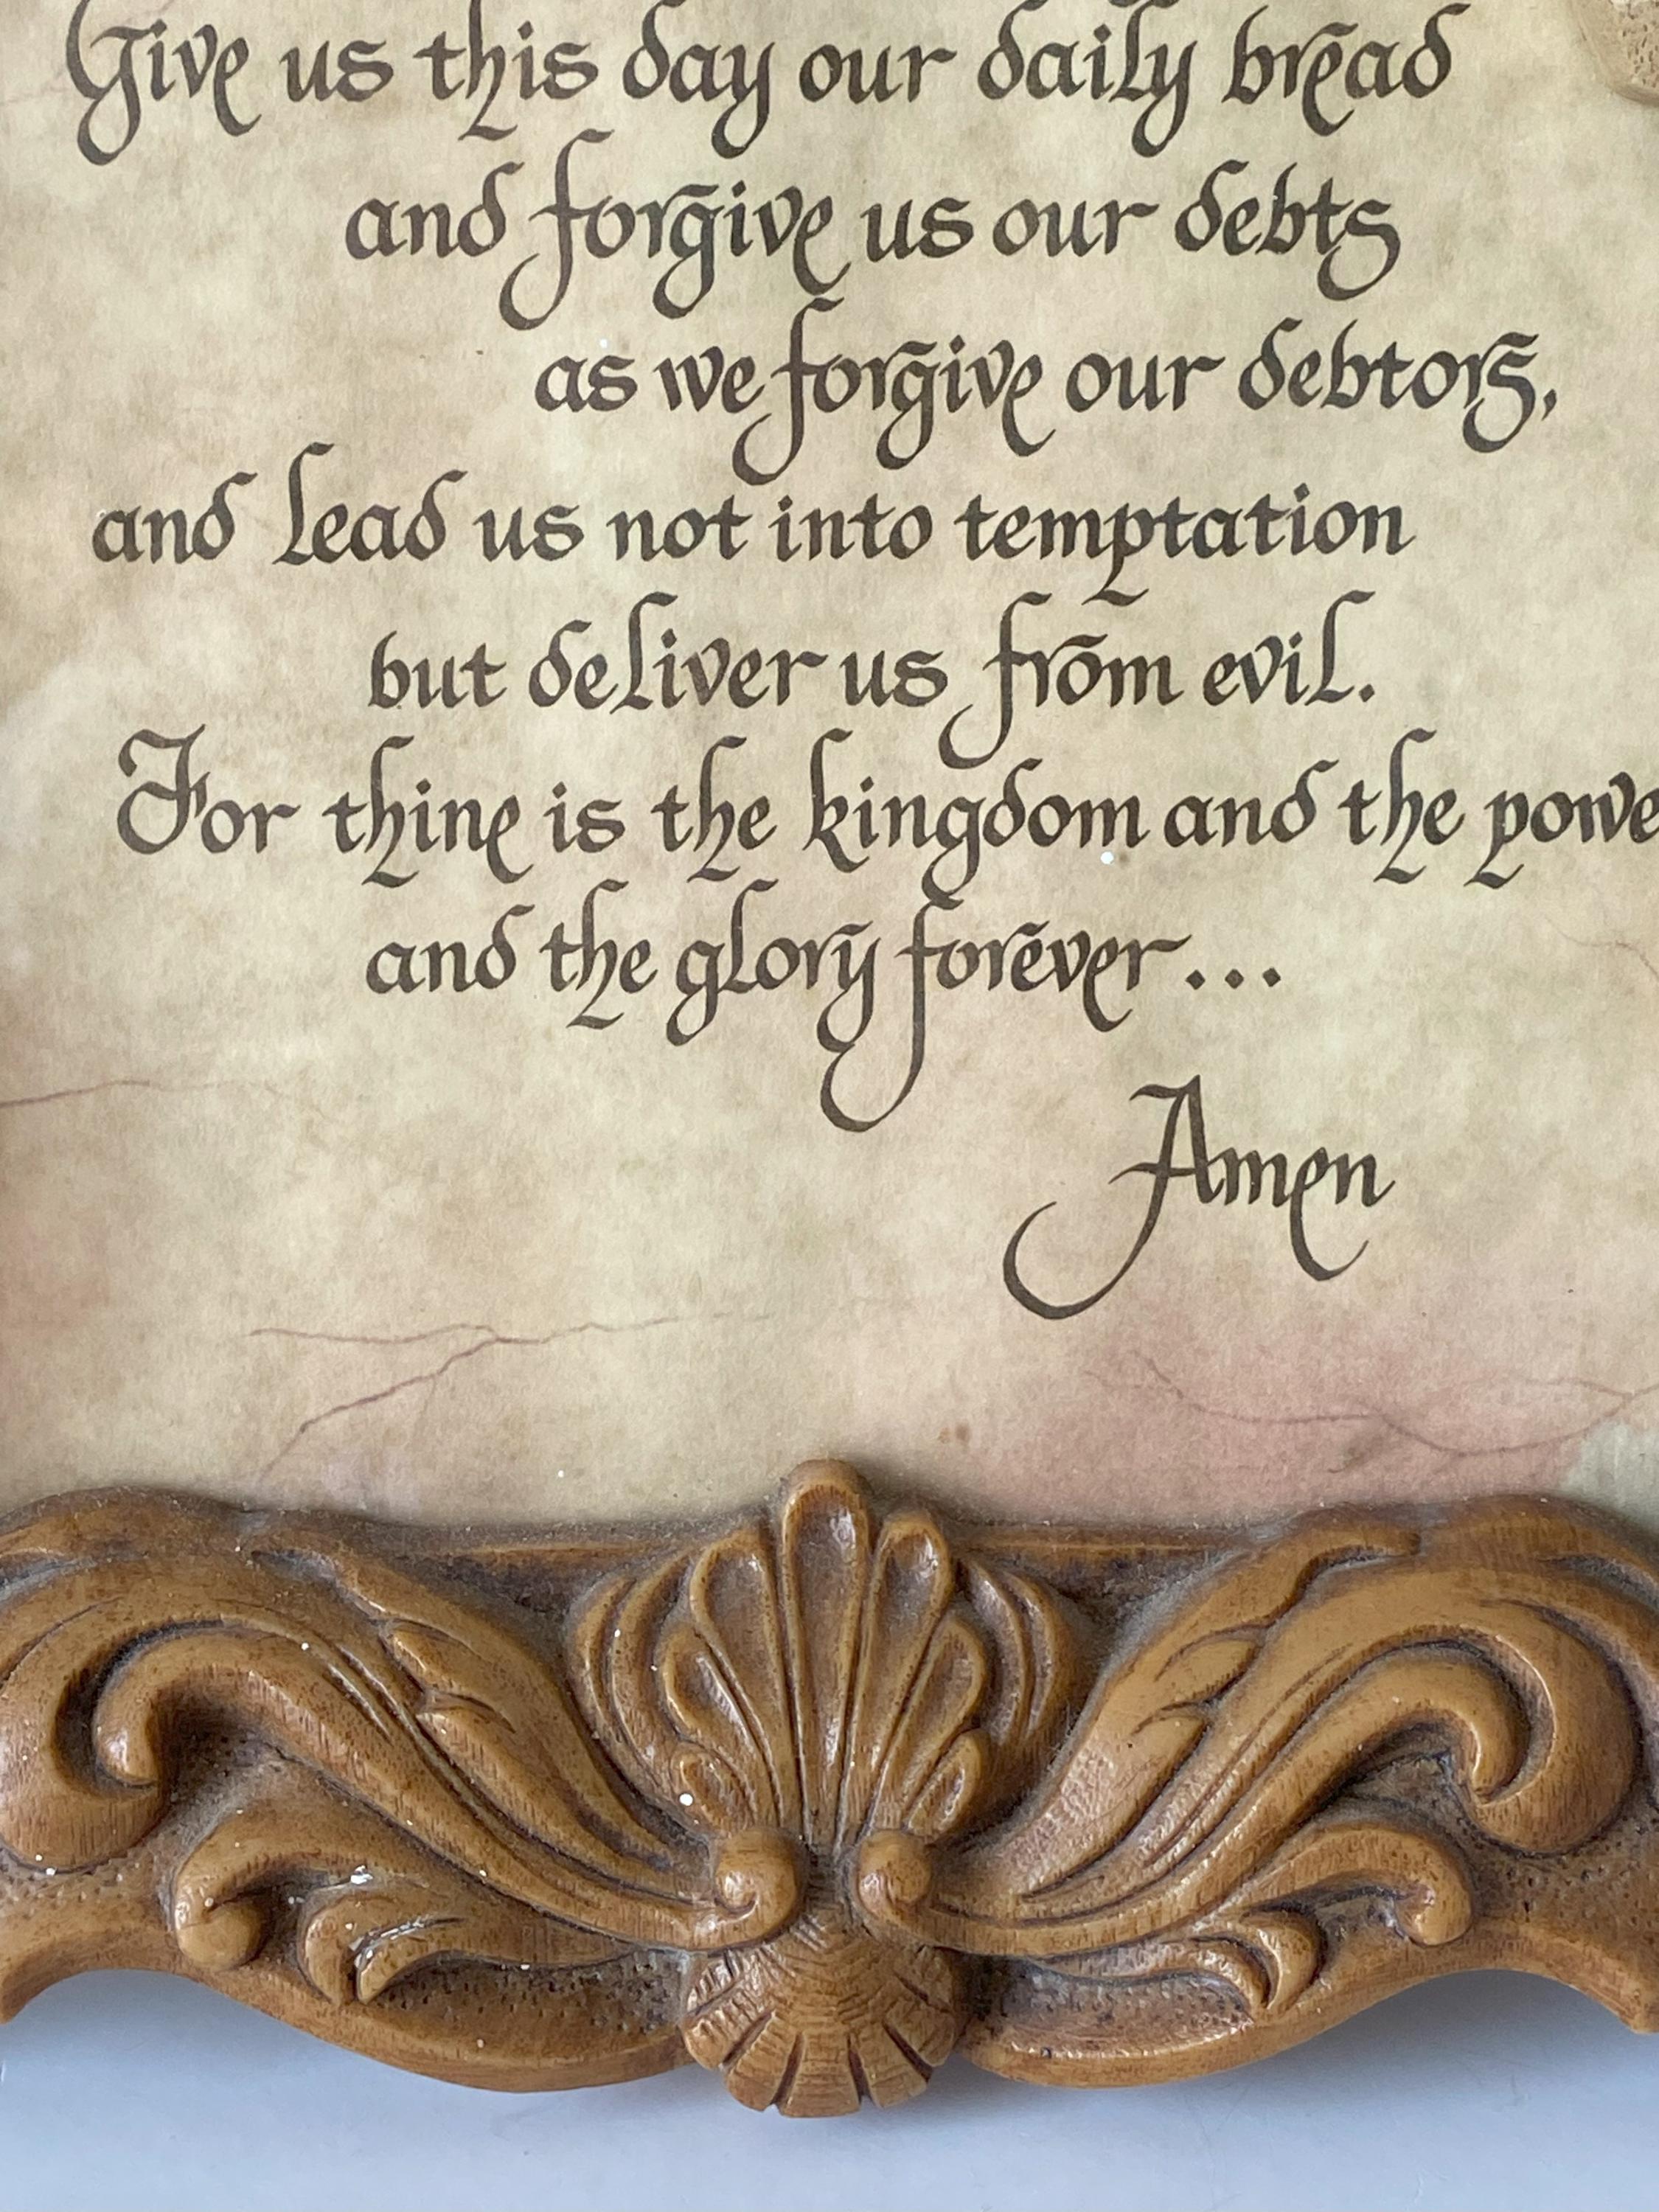 Give us this day our daily bread
and forgive us our debts
as we forgive our debtors,
and lead us not into temptation
but deliver us from evil.
For thine is the kingdom and the powe
and the glory forever...
Amen